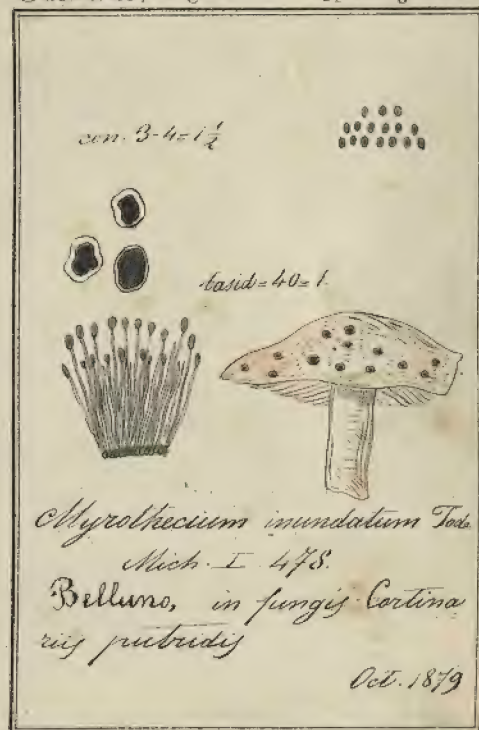 con. 3-4=1½
basid=40=1.
Myrothecium inundatum Tode
Mich. I 478.
Belluno, in fungis Cortina
riis putridis
Oct. 1879